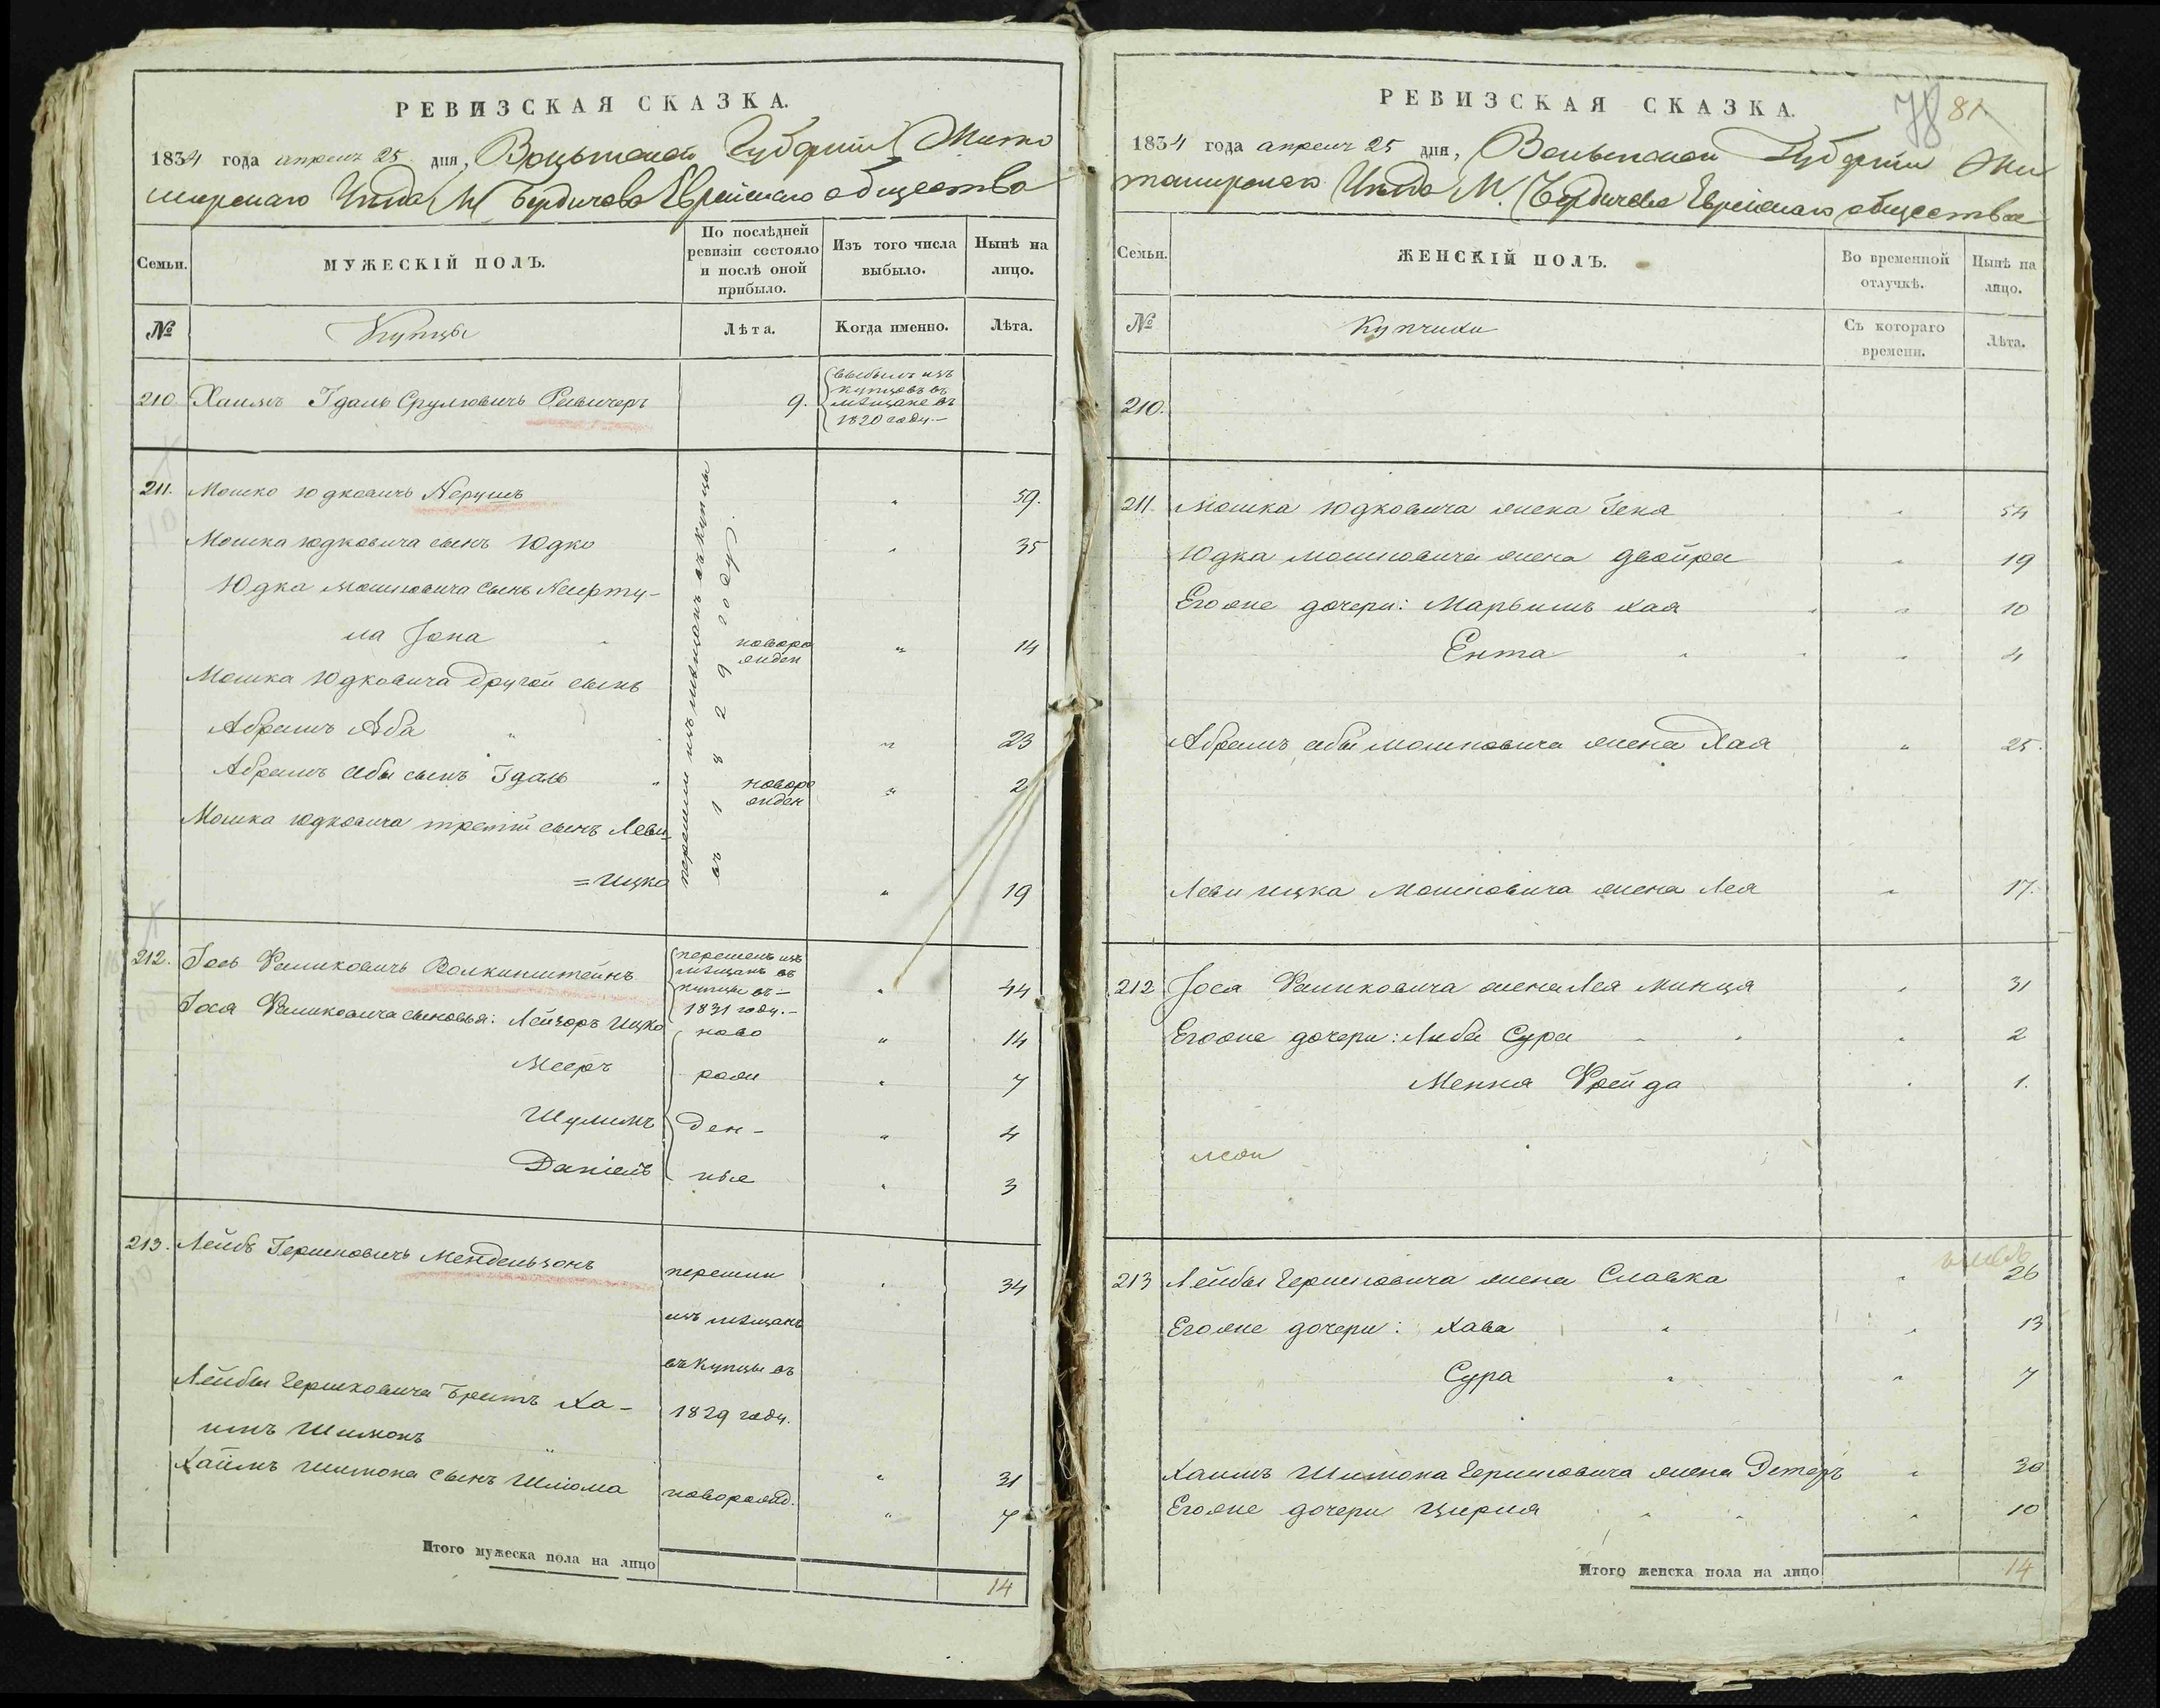 РЕВИЗСКАЯ СКАЗКА.
1834 года апреля 25 дня, Волынской Губернии Жито
мирскаго Уезда М Бердичева Еврейскаго общества
Семьи.
МУЖЕСКІЙ ПОЛЪ.
По послѣдней ревизіи состояло и послѣ оной прибыло.
Изъ того числа выбыло.
Нынѣ на лицо.
№
Купцы
Лѣта.
Когда именно.
Лѣта.
210 Хаимъ Гдаль Срулювичь 9.
выбылъ изъ
купцовъ въ
мѣщане въ
1820 году.–
211. Мошко Юдковичь „ 59.
Мошка Юдковича сынъ Юдко „ 35
Юдка Мошковича сынъ
ла Іона новорожден „ 14
Мошка Юдковича другой сынъ
Абрамъ Аба „ 23
Абрамъ Абы сынъ Гдаль новорожден „ 2
Мошка Юдковича третій сынъ Леви
=Ицко „ 19
перешли изъ мещанъ въ купцы
въ 1829 году.
212. Іось Фаликовичь Волкинштейнъ „ 44
перешелъ изъ
мѣщанъ въ
купцы въ –
1831 году.–
Іося Фаликовича сыновья: Лейзоръ Ицко ново „ 14
Мееръ рожи „ 7
Шулимъ ден– „ 4
Даніель ные „ 3
213. Лейбъ Гершковичь Мендельзонъ перешли „ 34
изъ мѣщанъ
въ купцы въ
Лейбы Гершковича братъ Ха– 1829 году.
имъ Шимонъ „ 31
Хаимъ Шимона сынъ Шлiома новорожд. „ 7
Итого мужеска пола на лицо 14
РЕВИЗСКАЯ СКАЗКА.
78 81
1834 года апреля 25 дня, Волынской Губернии Жи
томирскаго Уезда М. Бердичева Еврейскаго общества
Семьи.
ЖЕНСКІЙ ПОЛЪ.
Во временной отлучкѣ.
Нынѣ на лицо.
№
Купчихи
Съ котораго времени.
Лѣта.
210.
211. Мошка Юдковича жена Геня „ 54
Юдка Мошковича жена Двойра „ 19
Егоже дочери: Марьямъ Хая „ 10
Ента „ 4
Абрамъ Абы Мошковича жена Хая „ 25.
Леви Ицка Мошковича жена Лея „ 17.
212 Іося Фаликовича жена Лея Минця „ 31
Егоже дочери: Либа Сура „ 2
Мення Фрейда „ 1.
213 Лейбы Гершковича жена Славка „ 26
Егоже дочери: Хава „ 13
Сура „ 7
Хаимъ Шимона Гершковича жена „ 30
Егоже дочери Цирля „ 10
Итого женска пола на лицо 14